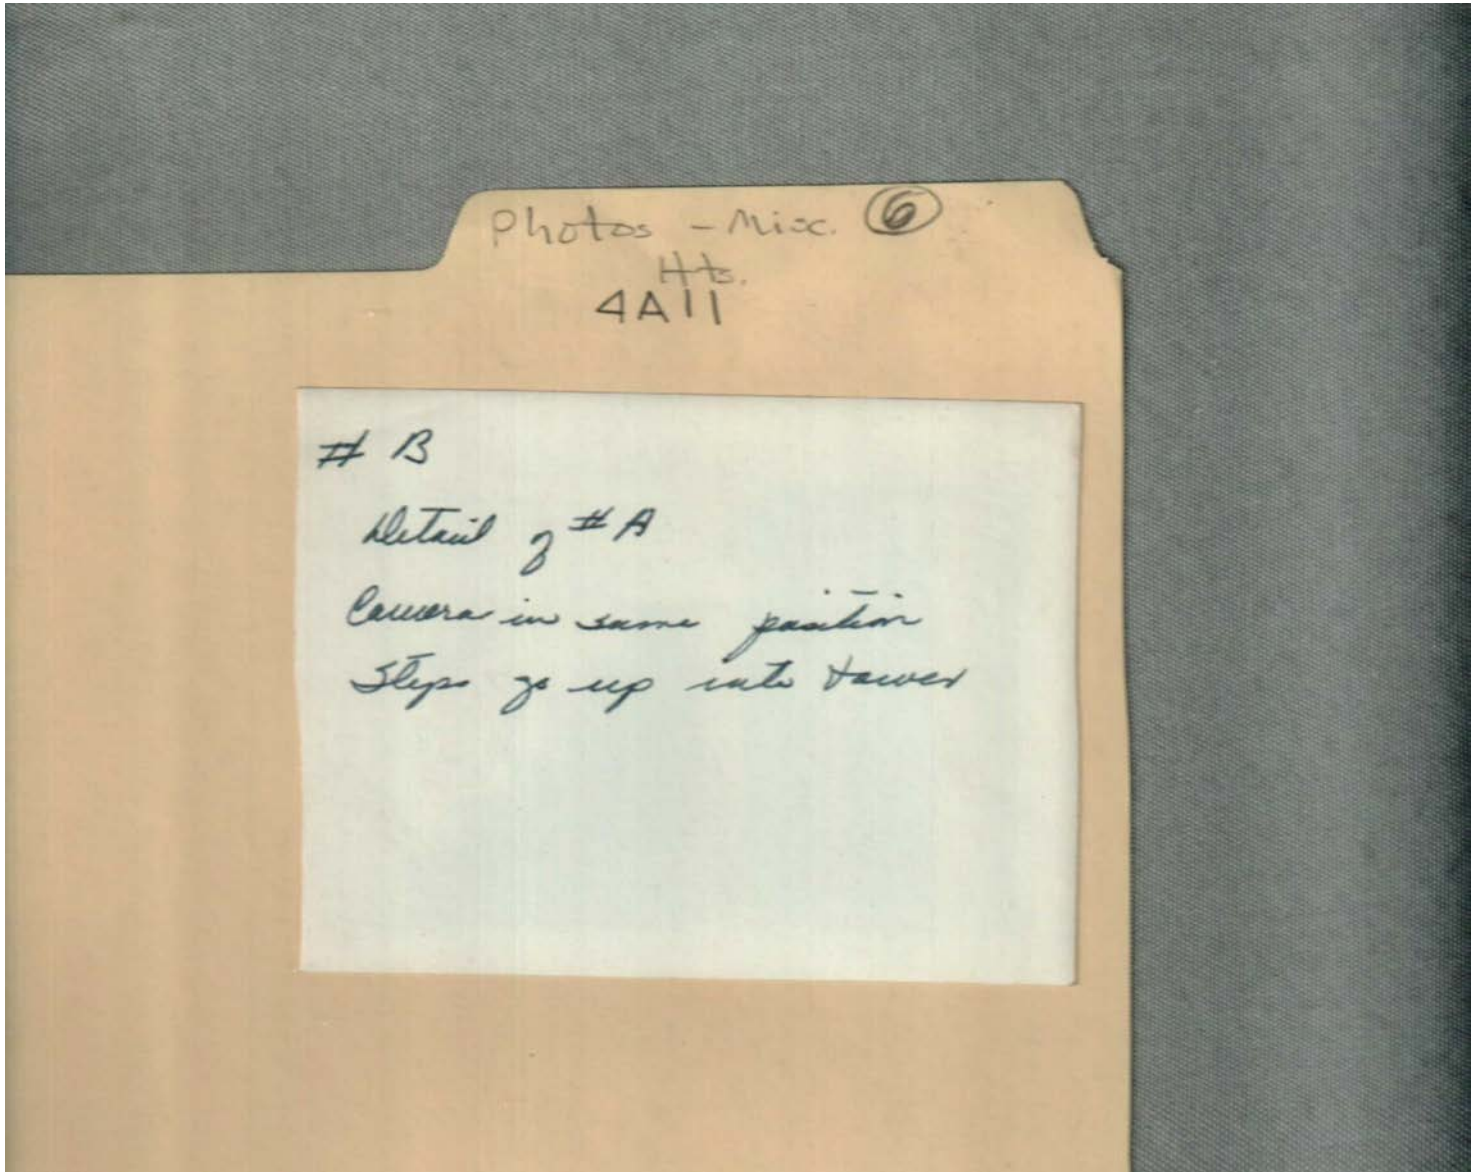 Photos - Misc. 6
Hts.
4A11
# B
Detail of # A
Camera in same position
Steps go up into tower